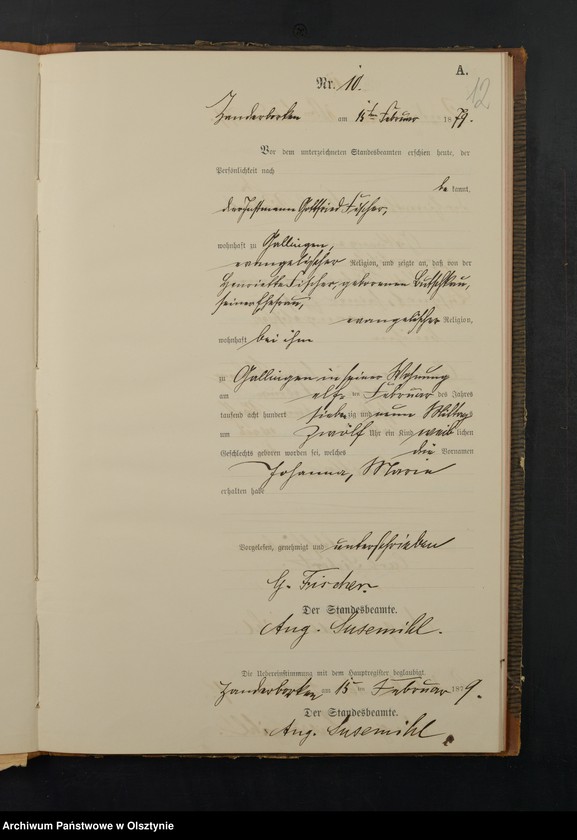 A.
Nr. 10.
12
Zanderborken am 15ten Februar 1879.
Vor dem unterzeichneten Standesbeamten erschien heute, der
Persönlichkeit nach
be kannt,
der Instmann Gottfried Fischer,
wohnhaft zu Gallingen,
evangelischer Religion, und zeigte an, daß von der
Henriette Fischer, geborenen
seiner Ehefrau,
evangelischer Religion,
wohnhaft bei ihm
zu Gallingen in seiner Wohnung
am elf ten Februar des Jahres
tausend acht hundert siebenzig und neun Mittags
um zwölf Uhr ein Kind weib lichen
Geschlechts geboren worden sei, welches die Vornamen
Johanna, Marie
erhalten habe
Vorgelesen, genehmigt und unterschrieben
G. Fischer.
Der Standesbeamte.
Aug. Susemihl.
Die Uebereinstimmung mit dem Hauptregister beglaubigt.
Zanderborken am 15 ten Februar 1879.
Der Standesbeamte.
Aug. Susemihl
Archiwum Państwowe w Olsztynie